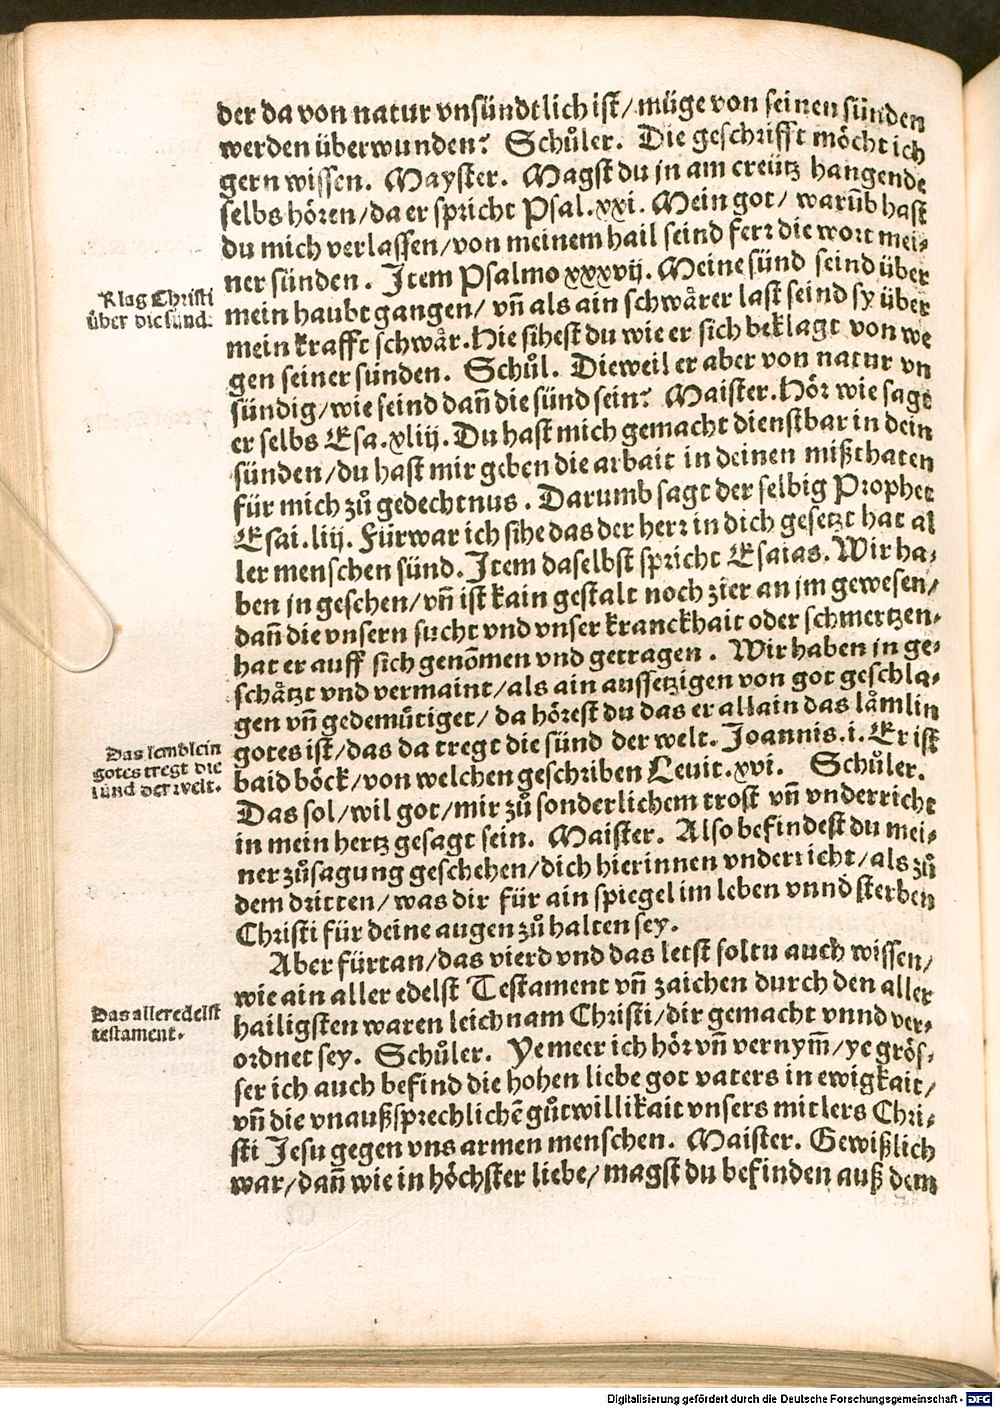 der da von natur vnsündtlich ist/ müge von seinen sünden
werden überwunden? Schůler. Die geschrifft möcht ich
gern wissen. Mayster. Magst du jn am creütz hangende
selbs hören/ da er spricht Psal. xxi. Mein got/ warũb hast
du mich verlassen/ von meinem hail seind ferr die wort mei-
ner sünden. Item Psalmo xxxvij. Meine sünd seind über
mein haubt gangen/ vñ als ain schwårer last seind sy über
mein krafft schwår. Hie sihest du wie er sich beklagt von we
gen seiner sünden. Schůl. Dieweil er aber von natur vn
sündig/ wie seind dañ die sünd sein? Maister. Hör wie sagt
er selbs Esa. xliij. Du hast mich gemacht dienstbar in dein
sünden/ du hast mir geben die arbait in deinen mißthaten
für mich zů gedechtnus. Darumb sagt der selbig Prophet
Esai. liij. Fürwar ich sihe das der herr in dich gesetzt hat al
ler menschen sünd. Item daselbst spricht Esaias. Wir ha-
ben jn gesehen/ vñ ist kain gestalt noch zier an jm gewesen/
dañ die vnsern sucht vnd vnser kranckhait oder schmertzen-
hat er auff sich genõmen vnd getragen. Wir haben jn ge-
schåtzt vnd vermaint/ als ain aussetzigen von got geschla-
gen vñ gedemütiget/ da hörest du das er allain das låmlin
gotes ist/ das da tregt die sünd der welt. Joannis. i. Er ist
baid böck/ von welchen geschriben Leuit. xvi. Schůler.
Das sol/ wil got/ mir zů sonderlichem trost vñ vnderricht
in mein hertz gesagt sein. Maister. Also befindest du mei-
ner zůsagung geschehen/ dich hierinnen vnderricht/ als zů
dem dritten/ was dir für ain spiegel im leben vnnd sterben
Christi für deine augen zů halten sey.
Aber fürtan/ das vierd vnd das letst soltu auch wissen/
wie ain aller edelst Testament vñ zaichen durch den aller
hailigsten waren leichnam Christi/ dir gemacht vnnd ver-
ordnet sey. Schůler. Ye meer ich hör vñ vernym̃/ ye grös-
ser ich auch befind die hohen liebe got vaters in ewigkait/
vñ die vnaußsprechlichẽ gůtwillikait vnsers mitlers Chri-
sti Jesu gegen vns armen menschen. Maister. Gewißlich
war/ dañ wie in höchster liebe/ magst du befinden auß dem
Klag Christi
über die sünd.
Das lemblein
gotes tregt die
sünd der welt.
Das alleredelst
testament.
Digitalisierung gefördert durch die Deutsche Forschungsgemeinschaft - DFG